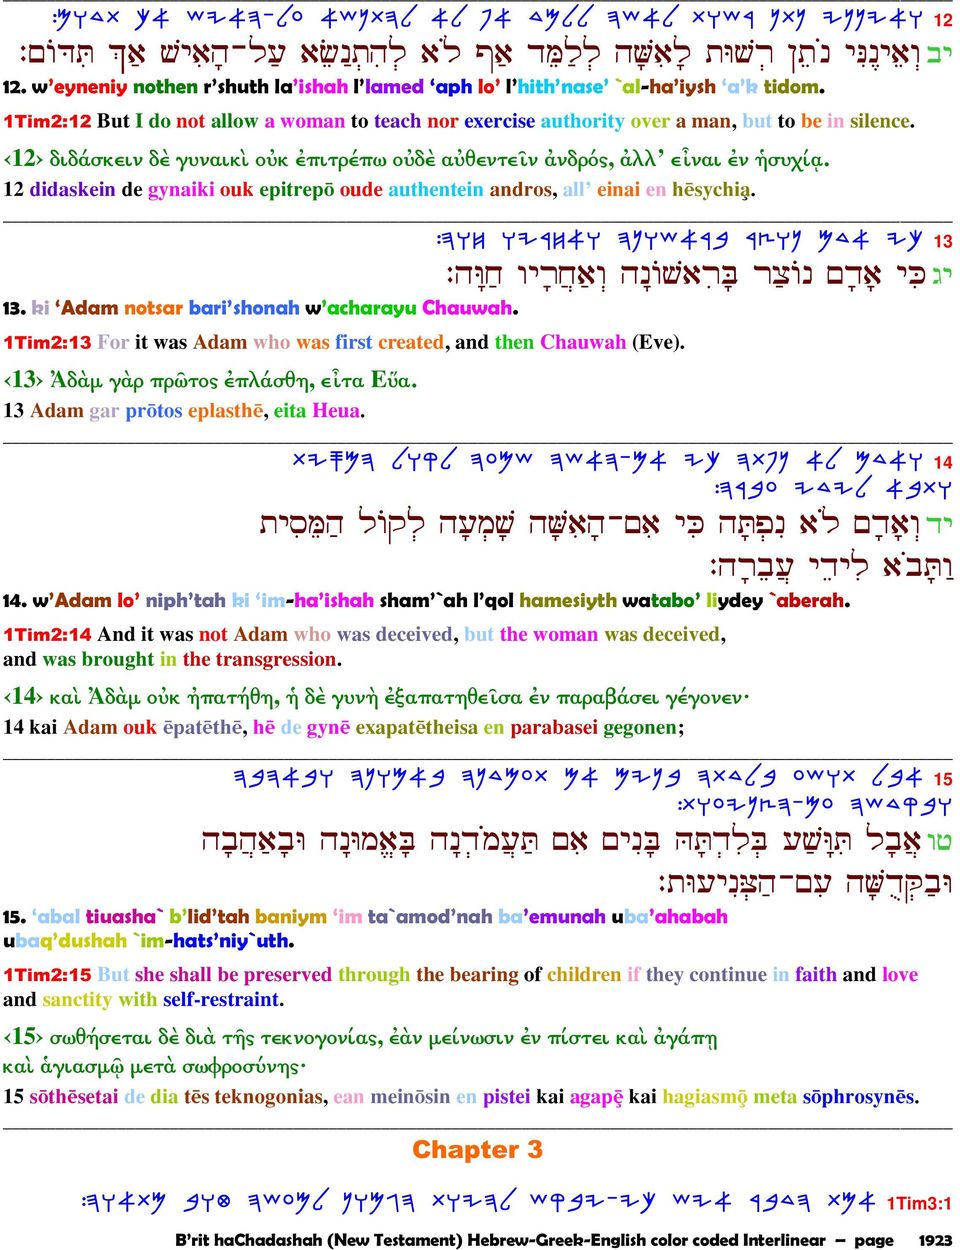 12 𐤅𐤀𐤉𐤍𐤍𐤉 𐤍𐤕𐤍 𐤓𐤔𐤅𐤕 𐤋𐤀𐤔𐤄 𐤋𐤋𐤌𐤃 𐤀𐤐 𐤋𐤀 𐤋𐤄𐤕𐤍𐤔𐤀 𐤏𐤋-𐤄𐤀𐤉𐤔 𐤀𐤊 𐤕𐤃𐤅𐤌:
יב וְאֵינֶנִּי נֹתֵן רְשׁוּת לָאִשָּׁה לְלַמֵּד אַף לֹא לְהִתְנַשֵּׂא עַל־הָאִישׁ אַךְ תִּדּוֹם׃
12. w'eyneniy nothen r'shuth la'ishah l'lamed 'aph lo' l'hith'nase' `al-ha'iysh 'a'k tidom.
1Tim2:12 But I do not allow a woman to teach nor exercise authority over a man, but to be in silence.
‹12› διδάσκειν δὲ γυναικὶ οὐκ ἐπιτρέπω οὐδὲ αὐθεντεῖν ἀνδρός, ἀλλ' εἶναι ἐν ἡσυχίᾳ.
12 didaskein de gynaiki ouk epitrepō oude authentein andros, all' einai en hēsychia̧.
13 𐤊𐤉 𐤀𐤃𐤌 𐤍𐤅𐤑𐤓 𐤁𐤓𐤀𐤔𐤅𐤍𐤄 𐤅𐤀𐤇𐤓𐤉𐤅 𐤇𐤅𐤄:
יג כִּי אָדָם נוֹצַר בָּרִאשׁוֹנָה וְאַחֲרָיו חַוָּה׃
13. ki 'Adam notsar bari'shonah w'acharayu Chauwah.
1Tim2:13 For it was Adam who was first created, and then Chauwah (Eve).
‹13› Ἀδὰμ γὰρ πρῶτος ἐπλάσθη, εἶτα Εὕα.
13 Adam gar prōtos eplasthē, eita Heua.
14 𐤅𐤀𐤃𐤌 𐤋𐤀 𐤍𐤐𐤕𐤄 𐤊𐤉 𐤀𐤌-𐤄𐤀𐤔𐤄 𐤔𐤌𐤏𐤄 𐤋𐤒𐤅𐤋 𐤄𐤌𐤎𐤉𐤕
𐤅𐤕𐤁𐤀 𐤋𐤉𐤃𐤉 𐤏𐤁𐤓𐤄:
יד וְאָדָם לֹא נִפְתָּה כִּי אִם־הָאִשָּׁה שָׁמְעָה לְקוֹל הַמֵּסִית
וַתָּבֹא לִידֵי עֲבֵרָה׃
14. w'Adam lo' niph'tah ki 'im-ha'ishah sham'`ah l'qol hamesiyth watabo' liydey `aberah.
1Tim2:14 And it was not Adam who was deceived, but the woman was deceived,
and was brought in the transgression.
‹14› καὶ Ἀδὰμ οὐκ ἠπατήθη, ἡ δὲ γυνὴ ἐξαπατηθεῖσα ἐν παραβάσει γέγονεν·
14 kai Adam ouk ēpatēthē, hē de gynē exapatētheisa en parabasei gegonen;
15 𐤀𐤁𐤋 𐤕𐤅𐤔𐤏 𐤁𐤋𐤃𐤕𐤄 𐤁𐤍𐤉𐤌 𐤀𐤌 𐤕𐤏𐤌𐤃𐤍𐤄 𐤁𐤀𐤌𐤅𐤍𐤄 𐤅𐤁𐤀𐤄𐤁𐤄
𐤅𐤁𐤒𐤃𐤔𐤄 𐤏𐤌-𐤄𐤑𐤍𐤉𐤏𐤅𐤕:
טו אֲבָל תִּוָּשַׁע בְּלִדְתָּהּ בָּנִים אִם תַּעֲמֹדְנָה בָּאֱמוּנָה וּבָאַהֲבָה
וּבַקְּדֻשָּׁה עִם־הַצְּנִיעוּת׃
15. 'abal tiuasha` b'lid'tah baniym 'im ta`amod'nah ba'emunah uba'ahabah
ubaq'dushah `im-hats'niy`uth.
1Tim2:15 But she shall be preserved through the bearing of children if they continue in faith and love
and sanctity with self-restraint.
‹15› σωθήσεται δὲ διὰ τῆς τεκνογονίας, ἐὰν μείνωσιν ἐν πίστει καὶ ἀγάπῃ
καὶ ἁγιασμῷ μετὰ σωφροσύνης·
15 sōthēsetai de dia tēs teknogonias, ean meinōsin en pistei kai agapȩ̄ kai hagiasmō̧ meta sōphrosynēs.
Chapter 3
1Tim3:1 𐤀𐤌𐤕 𐤄𐤃𐤁𐤓 𐤀𐤉𐤔 𐤊𐤉-𐤉𐤁𐤒𐤔 𐤋𐤄𐤉𐤅𐤕 𐤄𐤂𐤌𐤅𐤍 𐤋𐤌𐤏𐤔𐤄 𐤈𐤅𐤁 𐤌𐤕𐤀𐤅𐤄:
B'rit haChadashah (New Testament) Hebrew-Greek-English color coded Interlinear – page 1923